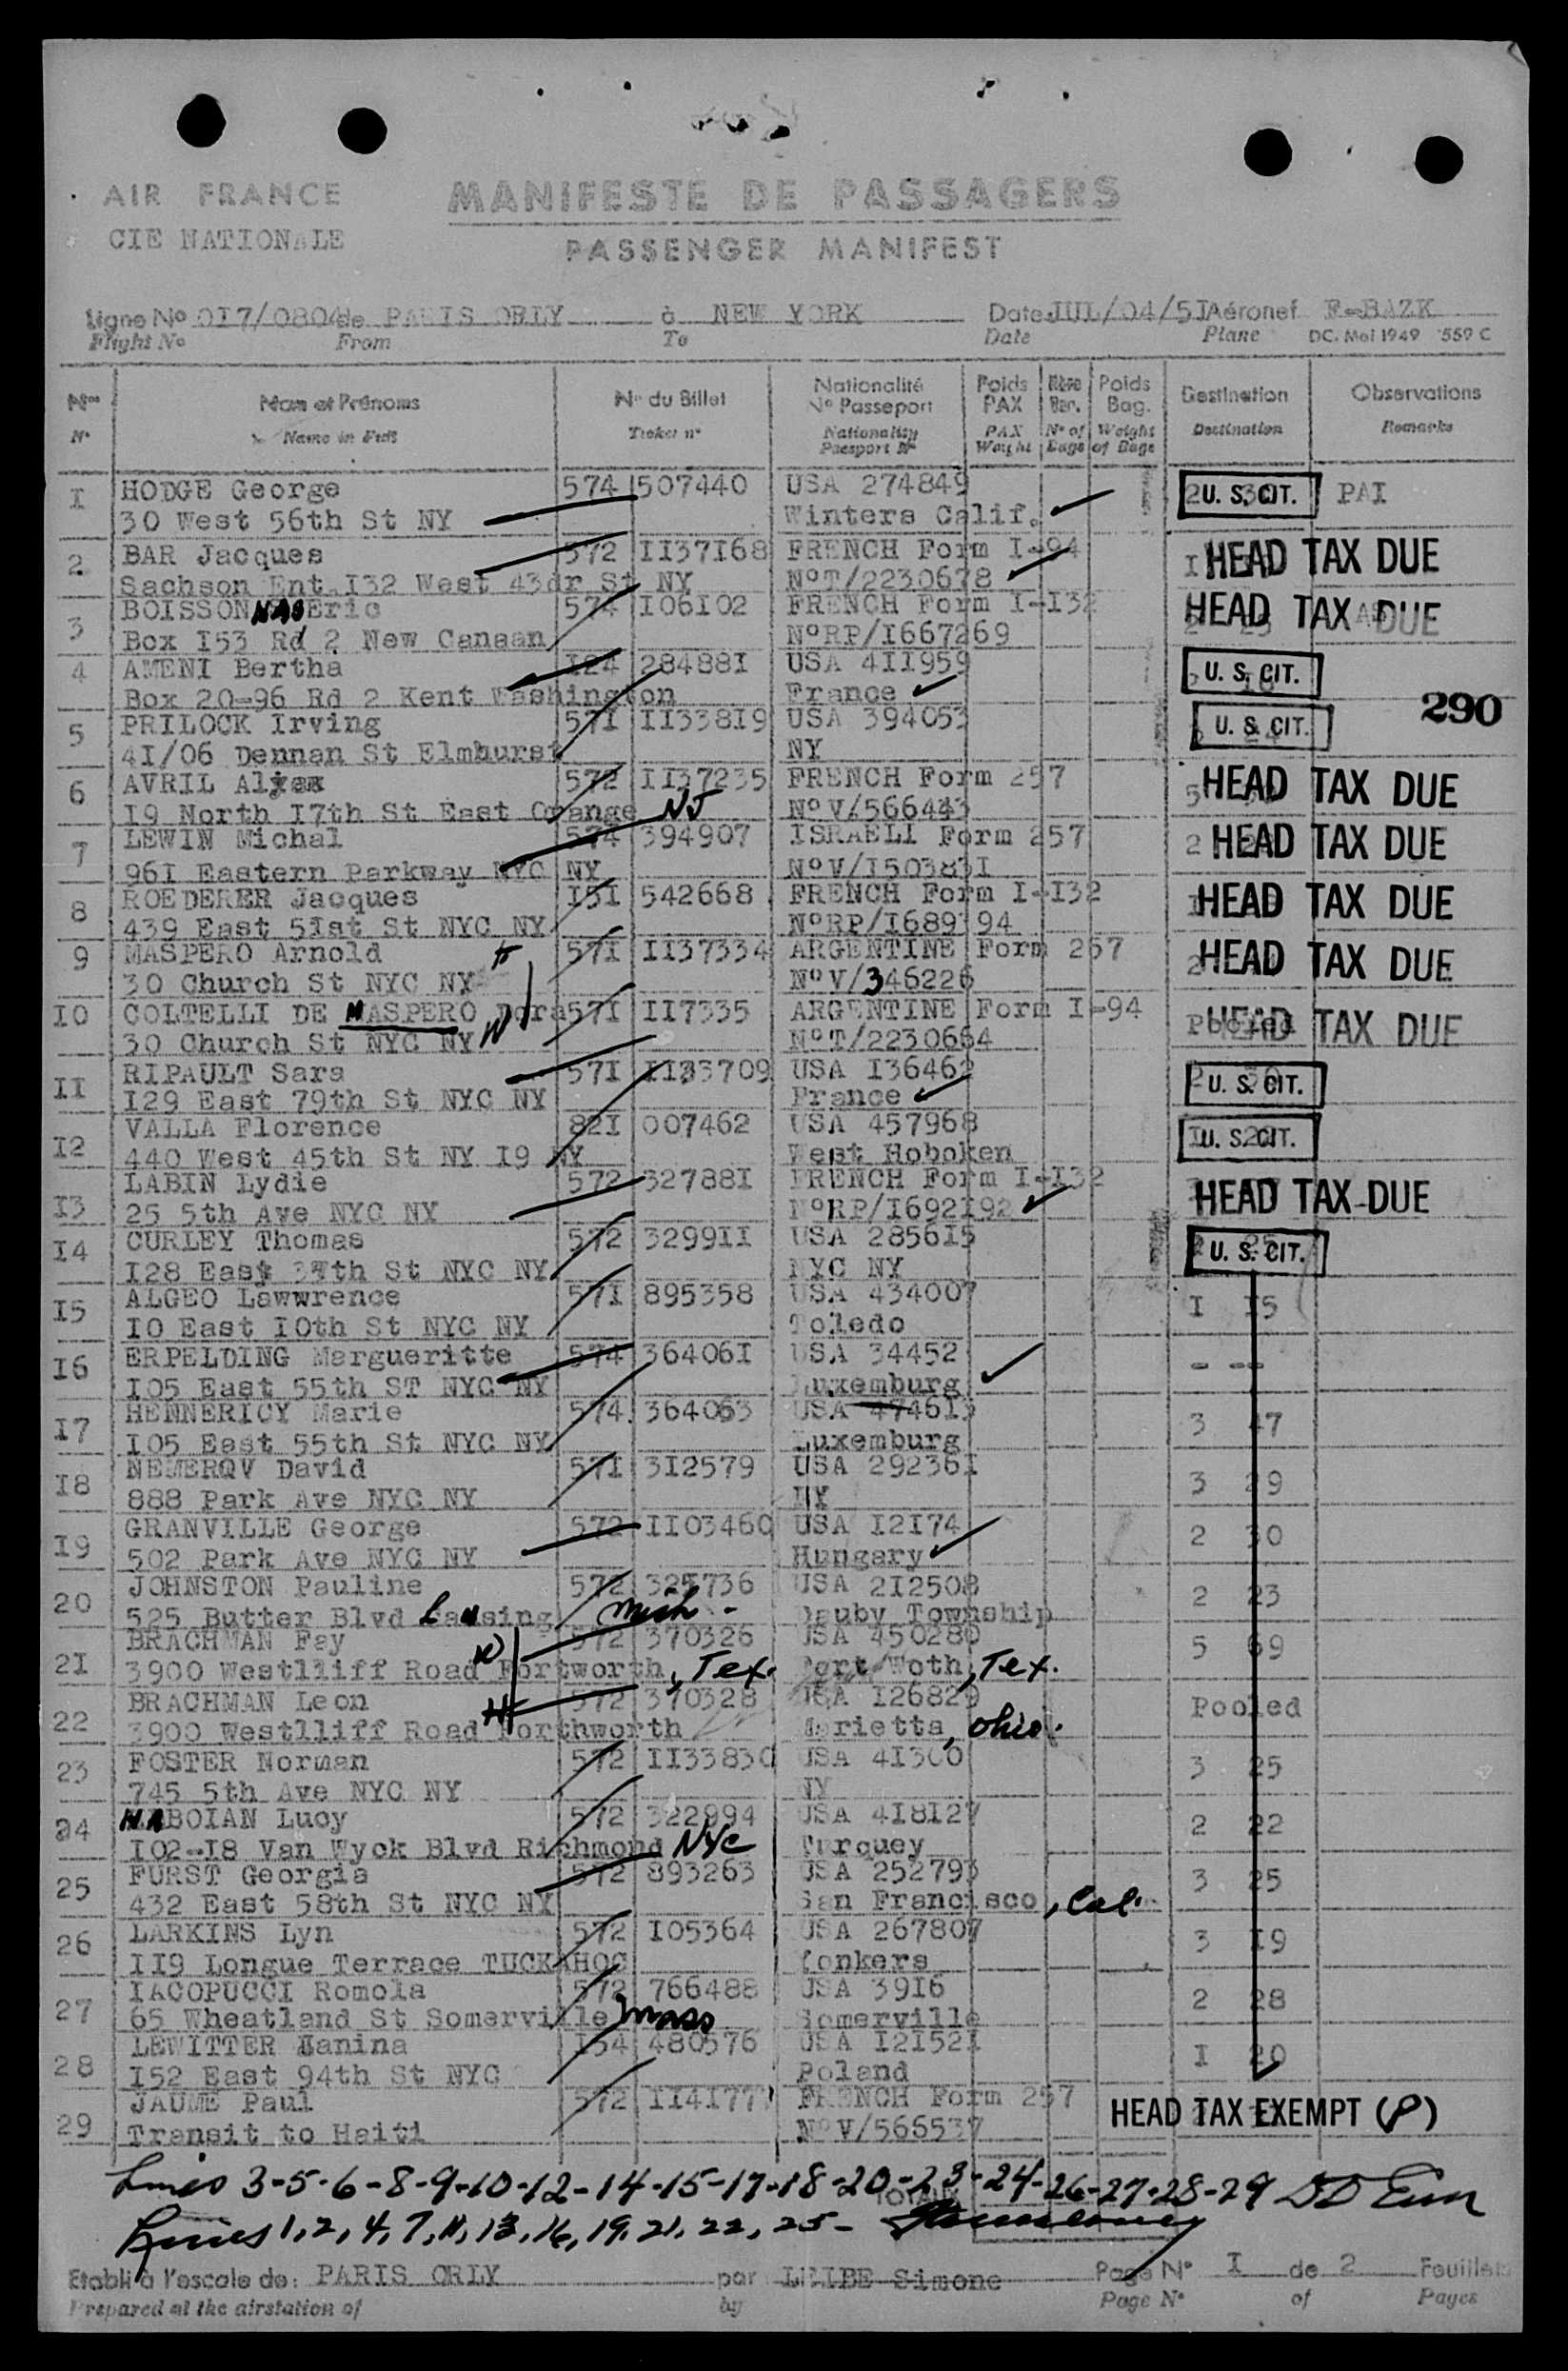 AIR FRANCE MANIFESTE DE PASSAGERS
CIE NATIONALE PASSENGER MANIFEST
Ligne No 0I7/0804 de PARIS ORLY à NEW YORK Date JUL/04/5I Aéronef F-BAZK
Flight No From To Date Plane DC. Mai 1949 559 C
Nos Nom et Prénoms No du Billet Nationalité Poids Nbre Poids Destination Observations
No Passeport PAX Bag. Bag.
N° Name in Full Ticket n° Nationality PAX N° of Weight Destination Remarks
Passport N° Weight Bags of Bags
I HODGE George 574 507440 USA 274849 U. S. CIT. PAI
30 West 56th St NY Winters Calif.
2 BAR Jacques 572 II37I68 FRENCH Form I-94 I HEAD TAX DUE
Sachson Ent.I32 West 43dr St NY NoT/2230678
3 BOISSONNAS Eric 574 I06I02 FRENCH Form I-I32 HEAD TAX DUE
Box I53 Rd 2 New Canaan NoRP/I667269
4 AMENI Bertha I24 28488I USA 4II959 U. S. CIT.
Box 20-96 Rd 2 Kent Washington France
290
5 PRILOCK Irving 57I II338I9 USA 394053 U. S. CIT.
4I/06 Dennan St Elmhurst NY
6 AVRIL 572 II37235 FRENCH Form 257 5 HEAD TAX DUE
I9 North I7th St East Orange NJ NoV/566443
7 LEWIN Michal 574 394907 ISRAELI Form 257 2 HEAD TAX DUE
96I Eastern Parkway NYC NY NoV/I50383I
8 ROEDERER Jacques I5I 542668 FRENCH Form I-I32 HEAD TAX DUE
439 East 5Ist St NYC NY NoRP/I689I94
9 MASPERO Arnold H 57I II37334 ARGENTINE Form 257 HEAD TAX DUE
30 Church St NYC NY NoV/346226
I0 COLTELLI DE MASPERO Dora 57I II7335 ARGENTINE Form I-94 Pooled HEAD TAX DUE
30 Church St NYC NY W NoT/2230664
II RIPAULT Sara 57I II33709 USA I36462 U. S. CIT.
I29 East 79th St NYC NY France
I2 VALLA Florence 82I 007462 USA 457968 U. S. CIT.
440 West 45th St NY I9 NY West Hoboken
I3 LABIN Lydie 572 32788I FRENCH Form I-I32 HEAD TAX DUE
25 5th Ave NYC NY NoRP/I692I92
I4 CURLEY Thomas 572 3299II USA 2856I5 U. S. CIT.
I28 East 37th St NYC NY NYC NY
I5 ALGEO Lawwrence 57I 895358 USA 434007 I I5
I0 East I0th St NYC NY Toledo
I6 ERPELDING Margueritte 574 36406I USA 34452 - --
I05 East 55th ST NYC NY Luxemburg
I7 HENNERICY Marie 574 364063 USA 4746I3 3 47
I05 East 55th St NYC NY Luxemburg
I8 NEMEROV David 57I 3I2579 USA 29236I 3 29
888 Park Ave NYC NY NY
I9 GRANVILLE George 572 II03460 USA I2I74 2 30
502 Park Ave NYC NY Hungary
20 JOHNSTON Pauline 572 USA 2I2508 2 23
525 Butter Blvd Lansing Mich - Dauby Township
2I BRACHMAN Fay W 572 370326 USA 450280 5 69
3900 Westlliff Road Fortworth, Tex. Fort Woth, Tex.
22 BRACHMAN Leon H 572 370328 USA I26829 Pooled
3900 Westlliff Road Forthworth Marietta, Ohio.
23 FOSTER Norman 572 II33830 USA 4I300 3 25
745 5th Ave NYC NY NY
24 NABOIAN Lucy 572 322994 USA 4I8I27 2 22
I02-I8 Van Wyck Blvd Richmond NYC Turquey
25 FURST Georgia 572 893263 USA 252793 3 25
432 East 58th St NYC NY San Francisco, Cal.
26 LARKINS Lyn 572 I05364 USA 267807 3 I9
II9 Longue Terrace TUCKAHOC Yonkers
27 IACOPUCCI Romola 572 766488 USA 39I6 2 28
65 Wheatland St Somerville Mass Somerville
28 LEWITTER Janina I54 480576 USA I2I52I I 20
I52 East 94th St NYC Poland
29 JAUME Paul 572 II4I777 FRENCH Form 257 HEAD TAX EXEMPT (P)
Transit to Haiti NoV/566537
Lines 3-5-6-8-9-10-12-14-15-17-18-20-23-24-26-27-28-29
TOTAUX
Lines 1, 2, 4, 7, 11, 13, 16, 19, 21, 22, 25-
Etabli à l'escale de: PARIS ORLY par LEIBE Simone Page No I de 2 Feuillets
Prepared at the airstation of by Page N° of Pages